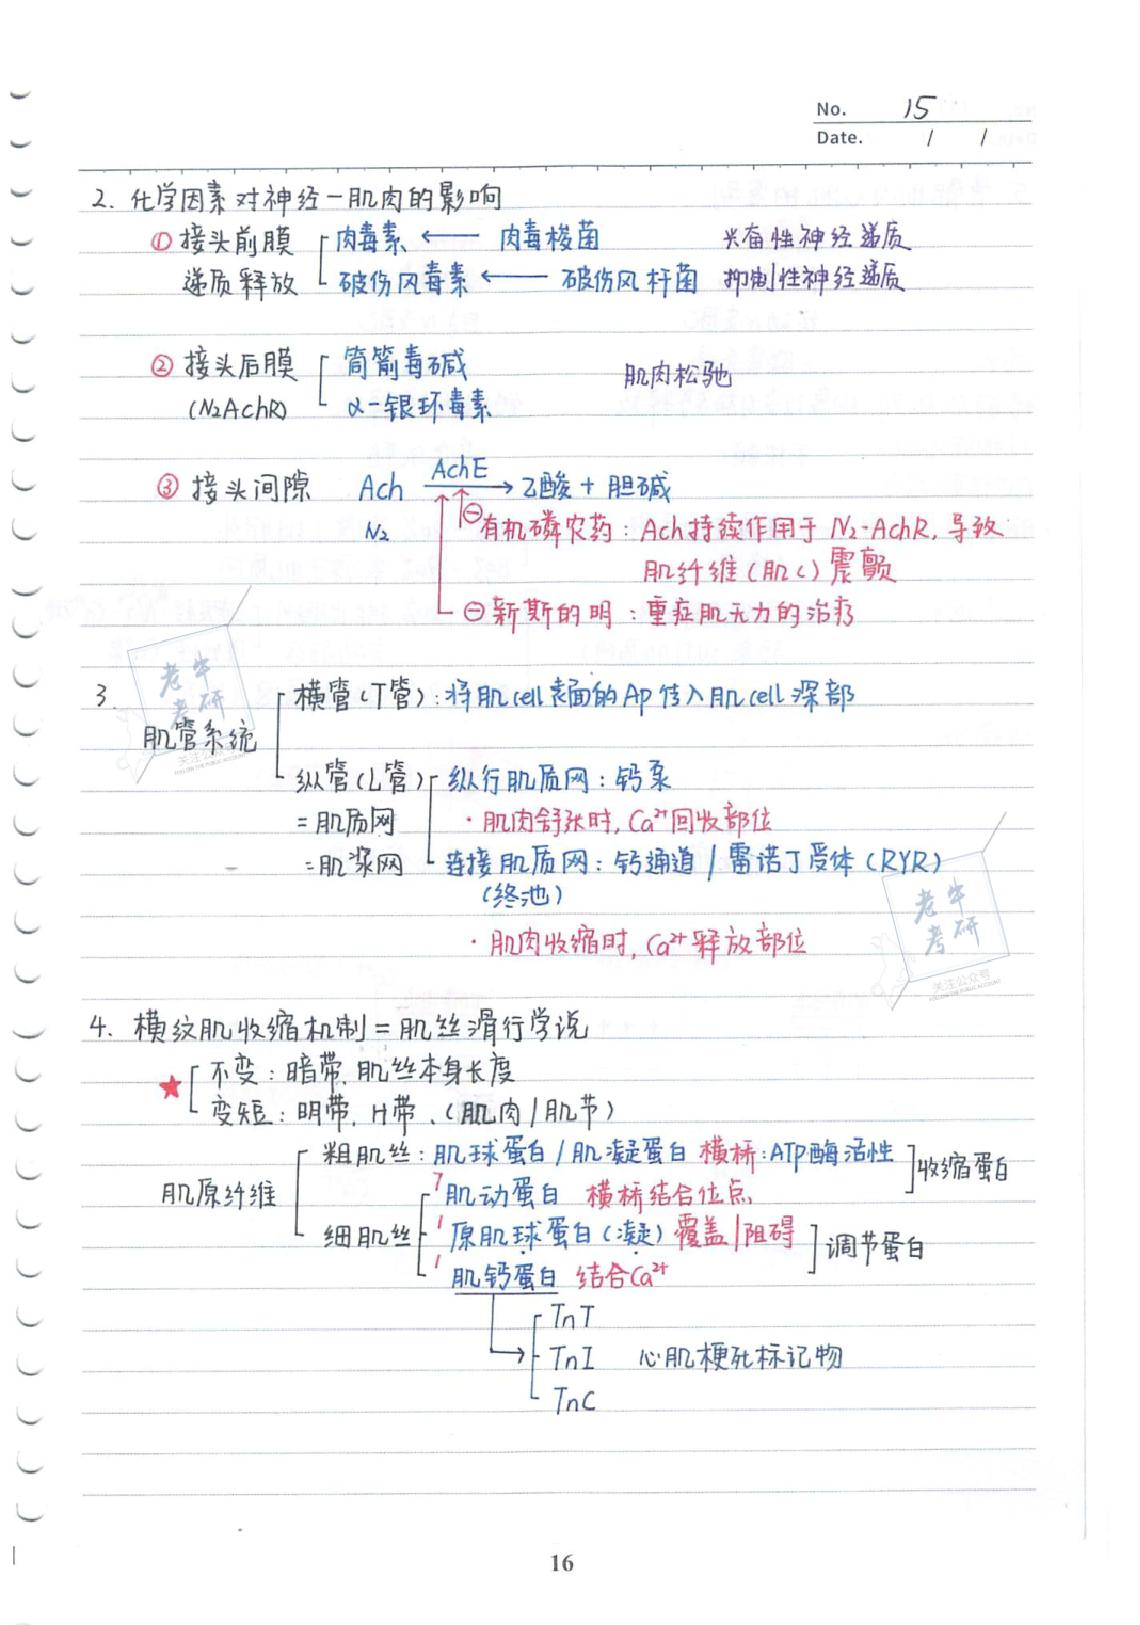 No. 15
Date. / /
2. 化学因素对神经-肌肉的影响
① 接头前膜 肉毒素 ← 肉毒梭菌 兴奋性神经递质
递质释放 破伤风毒素 ← 破伤风杆菌 抑制性神经递质
② 接头后膜 筒箭毒碱 肌肉松驰
(N₂AchR) α-银环毒素
③ 接头间隙 Ach AchE → 乙酸 + 胆碱
N₂ ⊖有机磷农药:Ach持续作用于N₂-AchR,导致
肌纤维(肌c)震颤
⊖新斯的明:重症肌无力的治疗
3. 横管(T管):将肌cell表面的Ap传入肌cell深部
肌管系统
纵管(L管) 纵行肌质网:钙泵
=肌质网 ·肌肉舒张时,Ca²⁺回收部位
=肌浆网 连接肌质网:钙通道/雷诺丁受体(RYR)
(终池)
·肌肉收缩时,Ca²⁺释放部位
4. 横纹肌收缩机制=肌丝滑行学说
★ 不变:暗带、肌丝本身长度
变短:明带、H带、(肌肉/肌节)
粗肌丝:肌球蛋白/肌凝蛋白 横桥:ATP酶活性 收缩蛋白
肌原纤维 7 肌动蛋白 横桥结合位点
细肌丝 1 原肌球蛋白(凝) 覆盖/阻碍 调节蛋白
1 肌钙蛋白 结合Ca²⁺
TnT
→ TnI 心肌梗死标记物
TnC
老牛考研
关注公众号
老牛考研
关注公众号
16